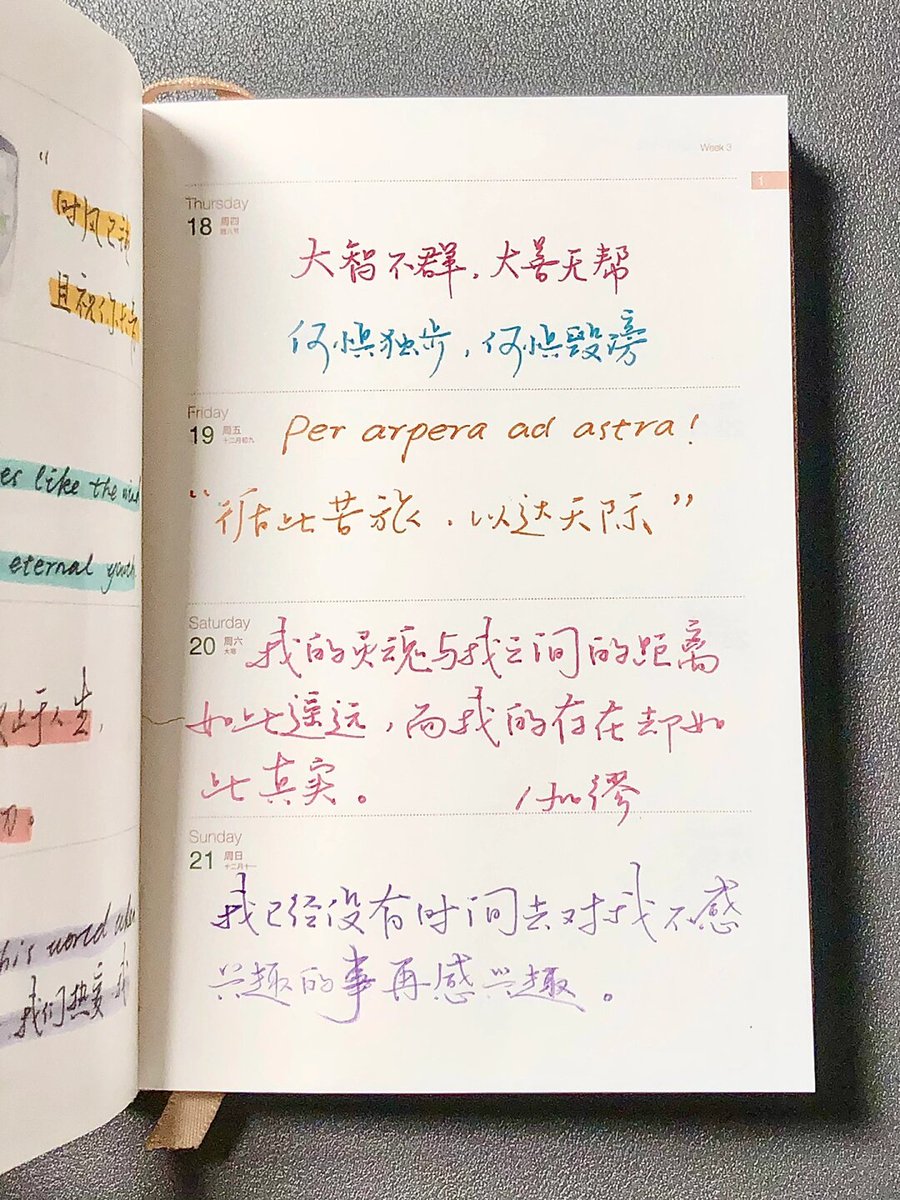 时风已
且祝你
es like the wind
eternal youth
止于人生，
his world
我们热爱 我
Week 3
1
Thursday
18 周四
腊八节
大智不群，大善无帮
何惧独步，何惧毁谤
Friday
19 周五
十二月初九
Per arpera ad astra!
“循此苦旅，以达天际”
Saturday
20 周六
大寒
我的灵魂与我之间的距离
如此遥远，而我的存在却如
此真实。 加缪
Sunday
21 周日
十二月十一
我已经没有时间去对我不感
兴趣的事再感兴趣。